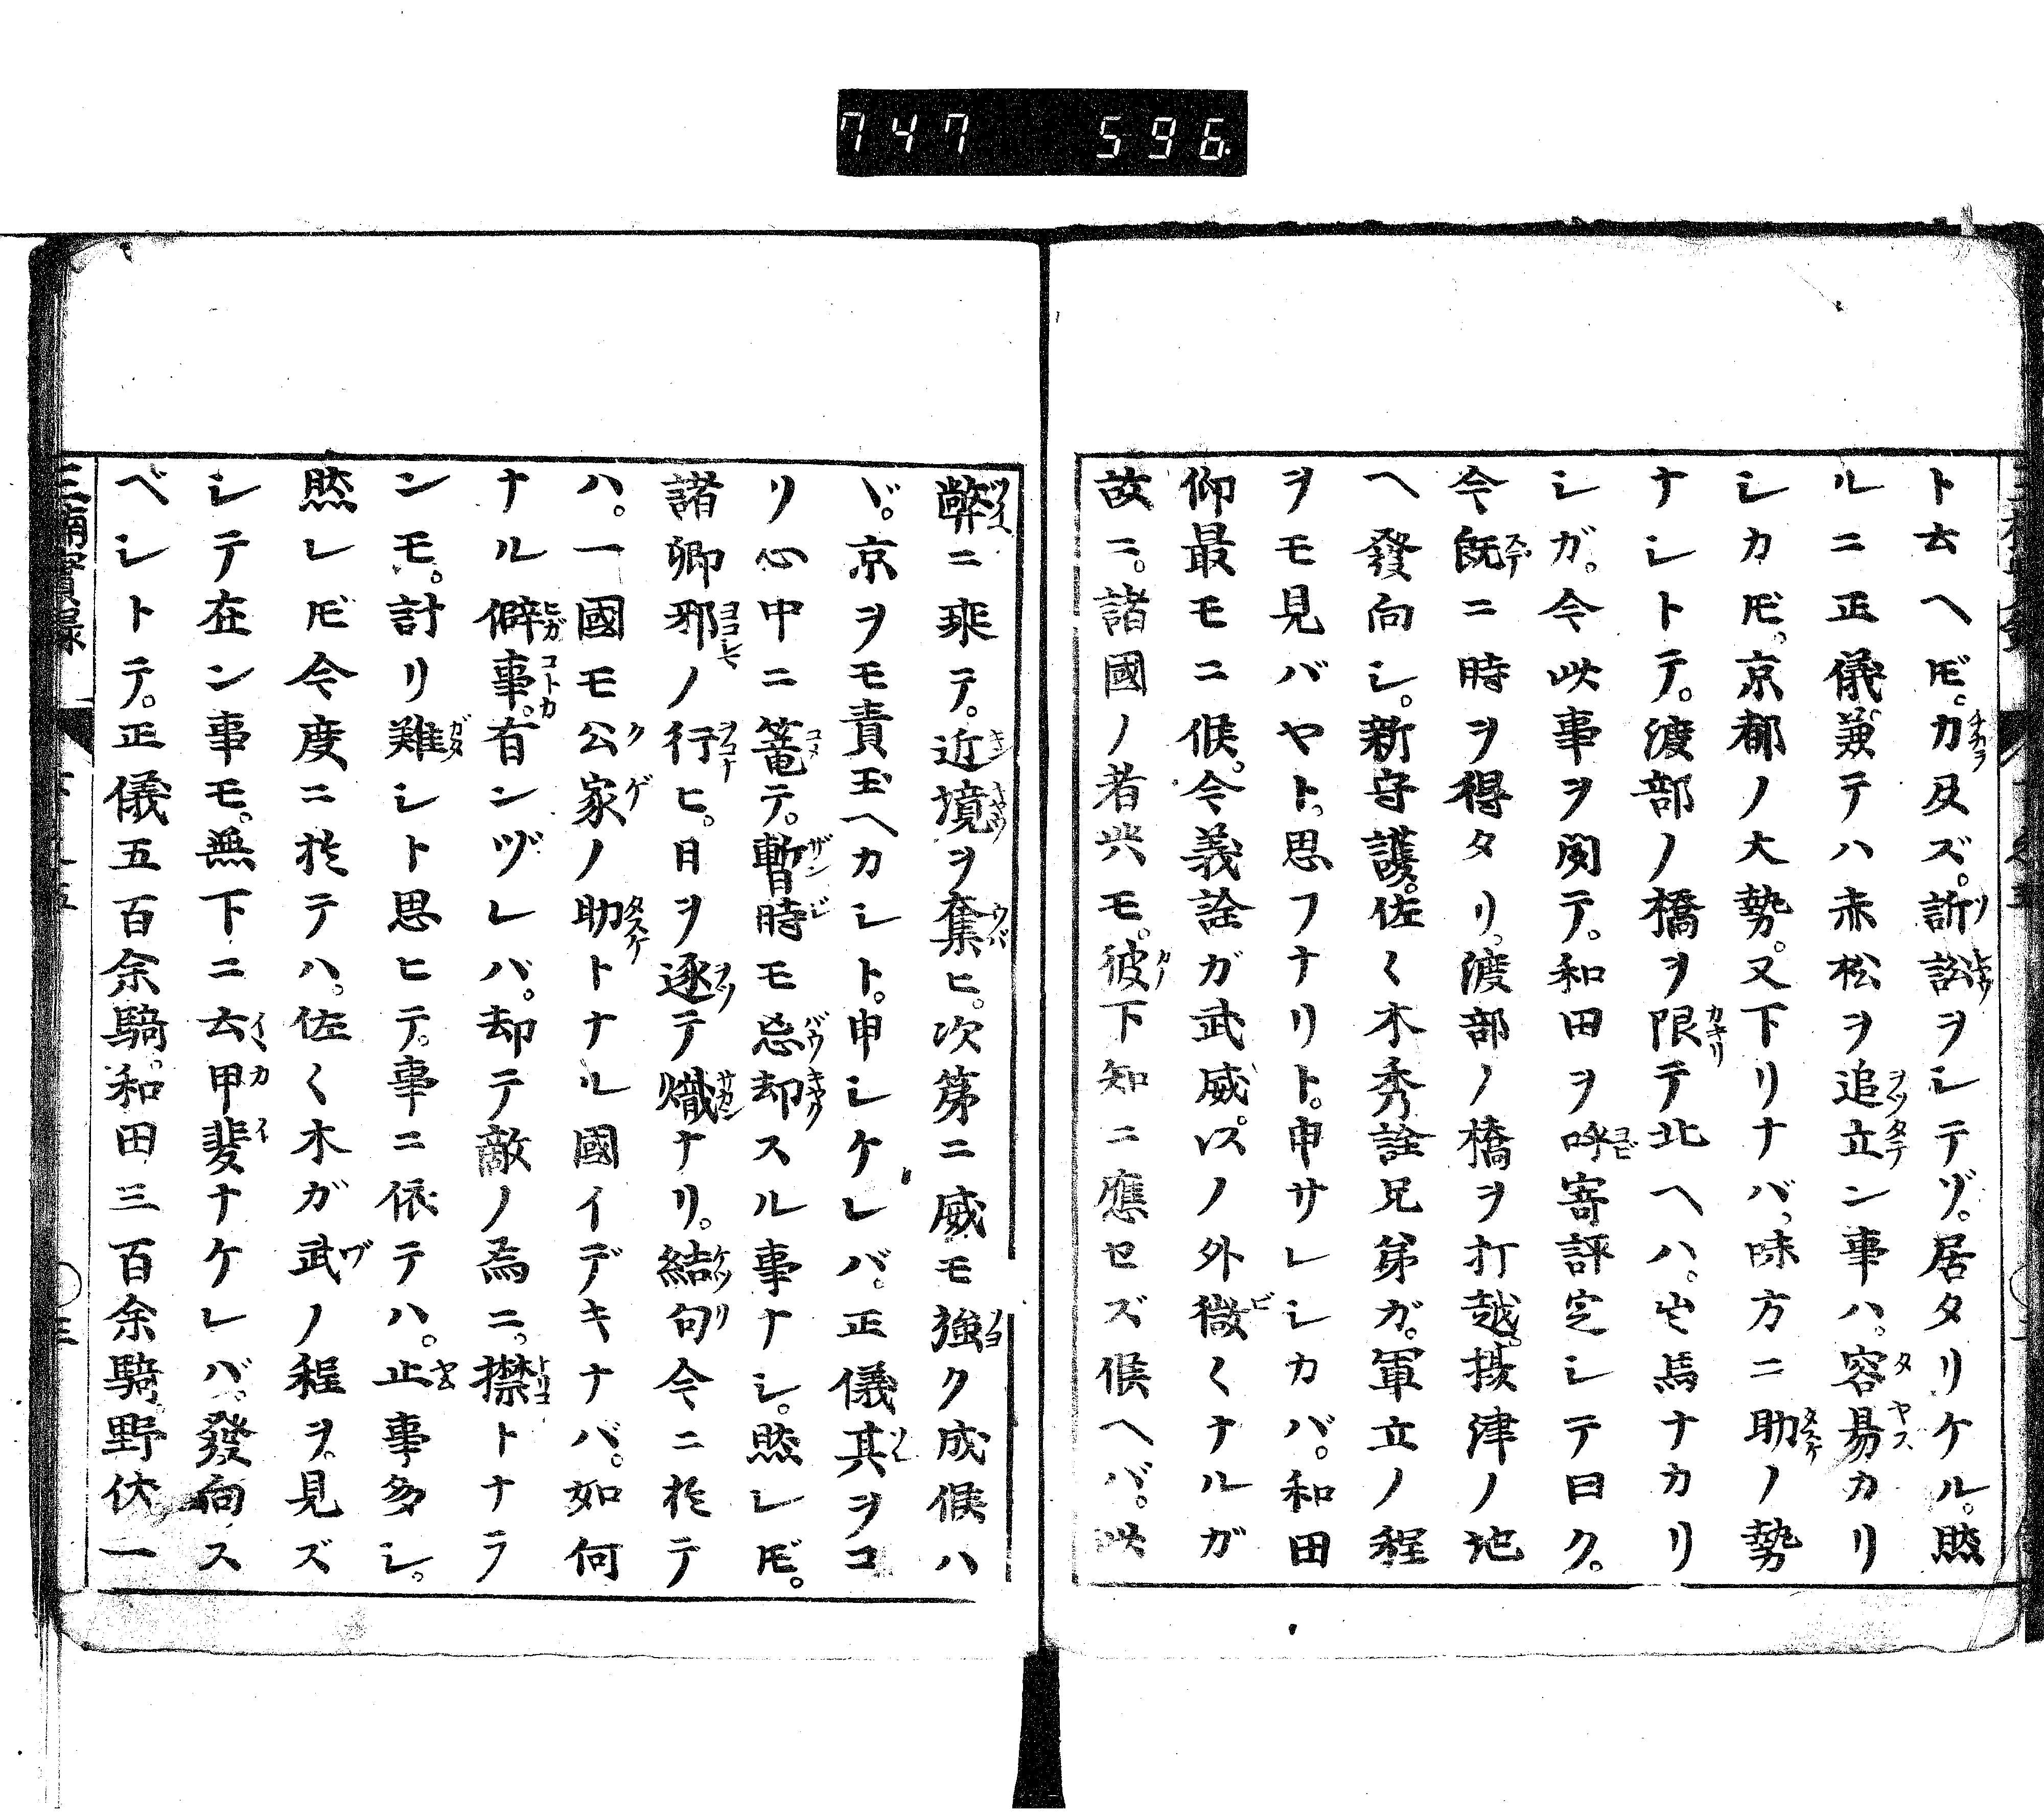 747 596
ト云ヘ𪜈。力及ズ。訴訟ヲシテゾ。居タリケル。然
ルニ正儀。兼テハ赤松ヲ追立ン事ハ。容易カリ
シカ𪜈。京都ノ大勢。又下リナバ。味方ニ助ノ勢
ナシトテ。渡部ノ橋ヲ限テ北ヘハ。出馬ナカリ
シガ。今此事ヲ聞テ。和田ヲ呼寄評定シテ曰ク。
今既ニ時ヲ得タリ。渡部ノ橋ヲ打越。摂津ノ地
ヘ發向シ。新守護。佐〱木秀詮兄弟ガ。軍立ノ程
ヲモ見バヤト。思フナリト。申サレシカバ。和田
仰最モニ候。今義詮ガ武威。以ノ外微〱ナルガ
故ニ。諸國ノ者共モ。彼下知ニ應セズ候ヘバ。此
弊ニ乗テ。近境ヲ奪ヒ。次第ニ威モ強ク成候ハ
ヾ。京ヲモ責玉ヘカシト。申シケレバ。正儀其ヲコ
リ心中ニ篭テ。暫時モ忘却スル事ナシ。然レ𪜈。
諸卿邪ノ行ヒ。日ヲ逐テ熾ナリ。結句今ニ於テ
ハ。一國モ公家ノ助トナル國イデキナバ。如何
ナル僻事。有ンヅレバ。却テ敵ノ為ニ。擒トナラ
ンモ。計リ難シト思ヒテ。事ニ依テハ。止事多シ。
然レ𪜈今度ニ於テハ。佐〱木ガ武ノ程ヲ。見ズ
シテ在ン事モ。無下ニ云甲斐ナケレバ。發向ス
ベシトテ。正儀五百余騎。和田三百余騎。野伏一